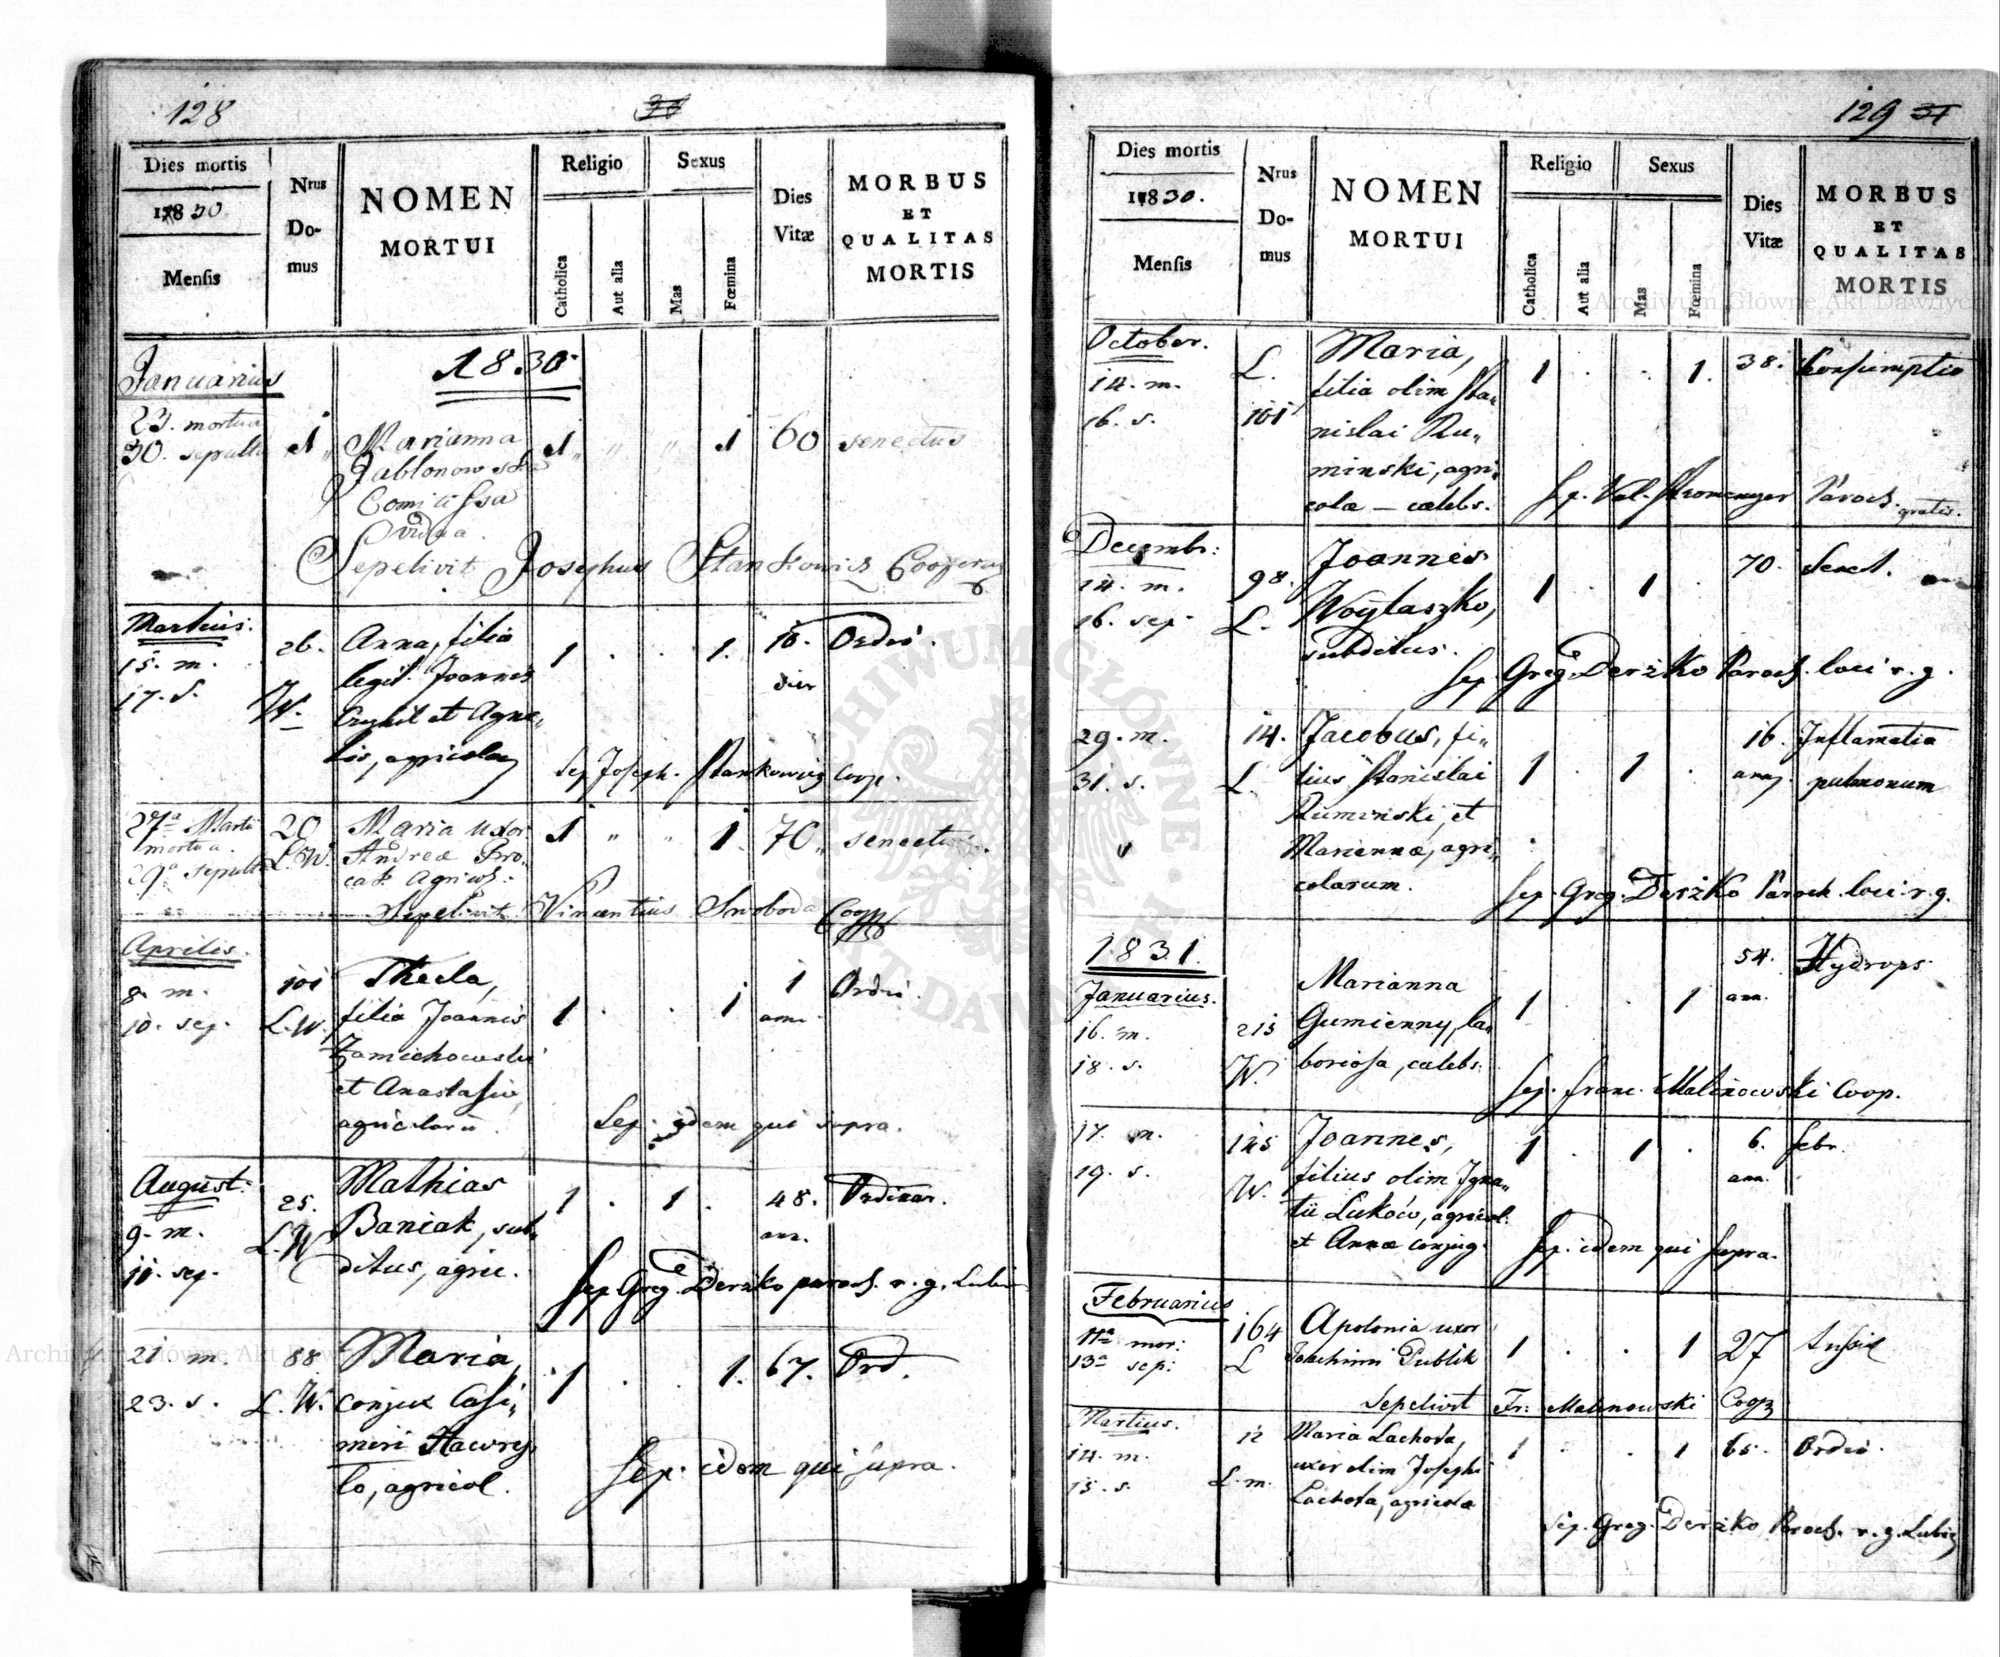 128
Dies mortis
1830.
Mensis
Nrus Domus
NOMEN
MORTUI
Religio
Catholica
Aut alia
Sexus
Mas
Fœmina
Dies
Vitæ
MORBUS
ET
QUALITAS
MORTIS
1830
Januarius
23. mortua
30. sepulta
1 Marianna 1 " " 1 60 senectus
Jablonowska
Comitissa
Vidua.
Sepelivit Josephus Stankowicz Cooperat
Martius.
15. m.
17. s.
26. Anna, filia 1 . . 1. 10. Ordin.
W. legit. Joannis dier
et Agne„
tis, agricolar
Sep. Joseph. Stankowicz Coop.
27a Martii
mortua.
29a sepulta
20 Maria uxor 1 " " 1. 70 senectus.
L.W. Andreæ Pro„
cak Agricol:
Sepelivit Vincentius Swoboda Coop
Aprilis.
8. m.
10. sep.
101 Thecla, 1 . . 1 1 Ordin.
L.W. filia Joannis ann.
Zamiechowski
et Anastasiæ,
agricolarū.
Sep. idem qui supra.
August:
9. m.
11. sep.
25. Mathias 1 . 1 . 48. Ordinar.
L.W. Baniak, sub„ ann.
ditus, agric.
Sep. Greg. Derzko paroch. r. g. Lubin
21 m.
23. s.
88 Maria, 1 . . 1. 67. Ord.
L.W. conjux Casi„
miri Hawry„
lo, agricol.
Sep. idem qui supra.
129
Dies mortis
1830.
Mensis
Nrus Domus
NOMEN
MORTUI
Religio
Catholica
Aut alia
Sexus
Mas
Fœmina
Dies
Vitæ
MORBUS
ET
QUALITAS
MORTIS
October.
14. m.
16. s.
L. Maria, 1 . . 1. 38. Consumptio
101 filia olim Sta„
nislai Ru„
minski, agri„
colæ — cælebs.
Sep. Val. Stromenger Paroch. gratis.
Decembr:
14. m.
16. sep.
98. Joannes 1 . 1 70. Senect.
L. Woytaszko,
subditus.
Sep. Greg. Derzko Paroch. loci r. g.
29. m.
31. s.
14. Jacobus, fi„ 1 . 1 . 16. Inflamatia
L. lius Stanislai ann. pulmonum
Ruminski, et
Mariennæ, agri„
colarum.
Sep. Greg. Derzko Paroch. loci r. g.
1831.
Januarius.
16. m.
18. s.
213 Marianna 1 . . 1 54. Hydrops
W. Gumienny, la„ ann.
boriosa, cælebs.
Sep. Franc. Malinowski Coop.
17. m.
19. s.
125 Joannes, 1 . 1 . 6. febr.
W. filius olim Igna„ ann.
tii Lukow, agricol.
et Annæ conjug.
Sep. idem qui supra.
Februarius
11a mor:
13a sep:
164 Apolonia uxor 1 . . 1 27 tussis
L Joachimi Dublik
Sepelivit Fr: Malinowski Coop
Martius.
14. m.
15. s.
12 Maria Lachota, 1 . . 1 65. Ordin.
L. m. uxor olim Josephi
Lachota, agricolæ
Sep. Greg. Derzko Paroch. r. g. Lubin
Archiwum Główne Akt Dawnych
Archiwum Główne Akt Dawnych
ARCHIWUM GŁÓWNE AKT DAWNYCH